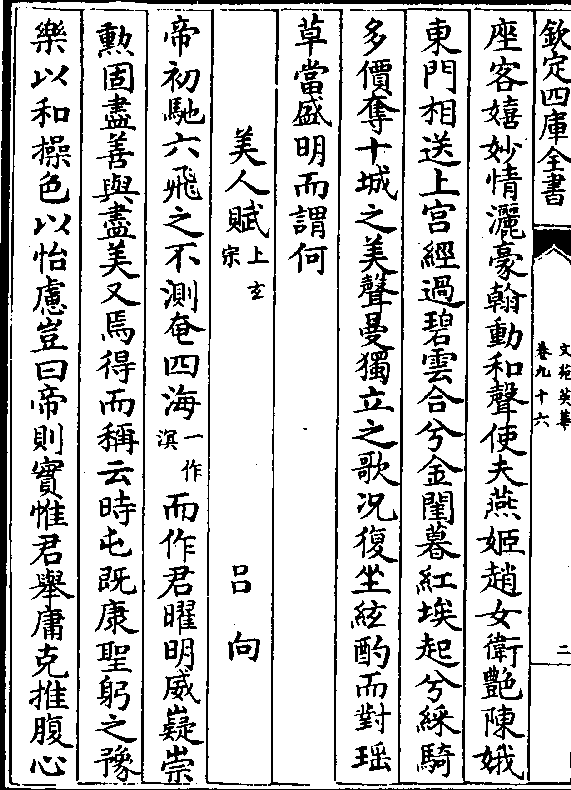 欽定四庫全書
文苑英華
卷九十六
二
座客嬉妙情灑豪翰動和聲使夫燕姬趙女衛艷陳娥
東門相送上宫經過碧雲合兮金閨暮紅埃起兮綵騎
多價奪十城之美聲曼獨立之歌况復坐絃酌而對瑶
草當盛明而謂何
美人賦上玄宗 吕向
帝初馳六飛之不測奄四海一作溟而作君曜明威嶷崇
勲固盡善與盡美又焉得而稱云時屯既康聖躬之豫
樂以和操色以怡慮豈曰帝則實惟君舉庸克推腹心